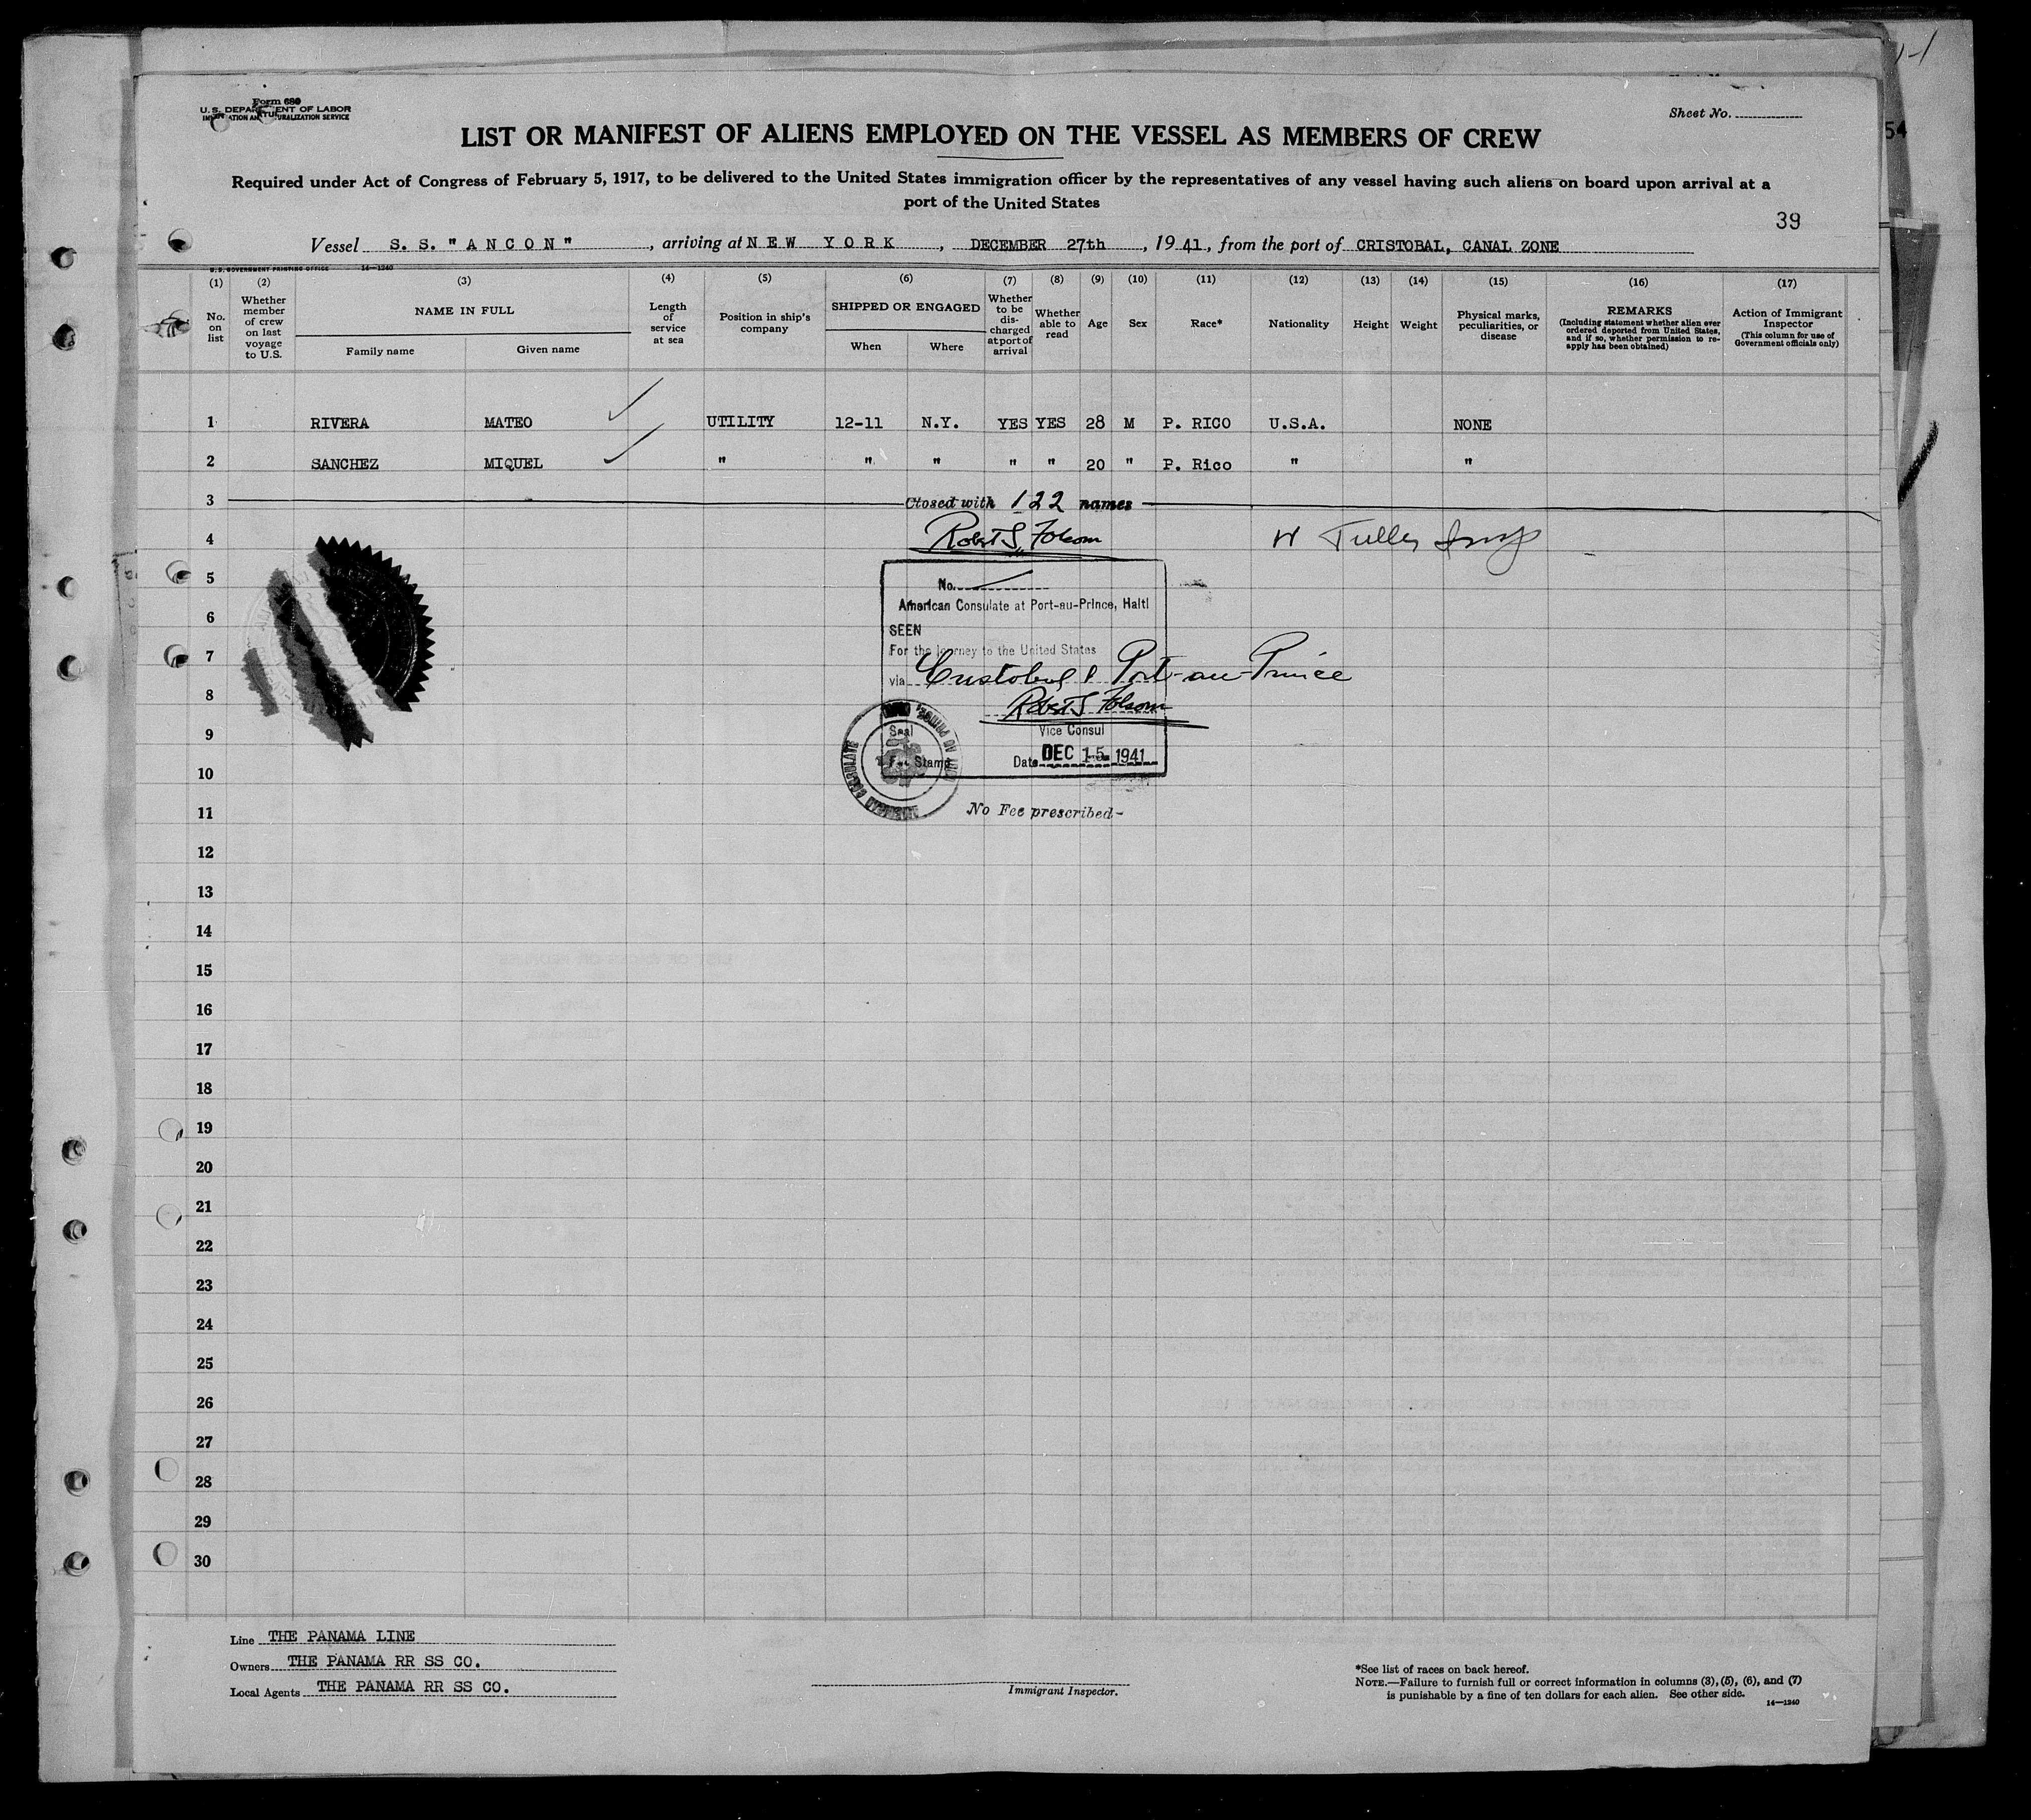 Form 680
U. S. DEPARTMENT OF LABOR
IMMIGRATION AND NATURALIZATION SERVICE
Sheet No.
LIST OR MANIFEST OF ALIENS EMPLOYED ON THE VESSEL AS MEMBERS OF CREW
Required under Act of Congress of February 5, 1917, to be delivered to the United States immigration officer by the representatives of any vessel having such aliens on board upon arrival at a
port of the United States
54
39
Vessel S. S. "ANCON", arriving at NEW YORK, DECEMBER 27th, 1941, from the port of CRISTOBAL, CANAL ZONE
U. S. GOVERNMENT PRINTING OFFICE 14—1240
(1) (2) (3) (4) (5) (6) (7) (8) (9) (10) (11) (12) (13) (14) (15) (16) (17)
No. on list
Whether member of crew on last voyage to U.S.
NAME IN FULL
Family name Given name
Length of service at sea
Position in ship's company
SHIPPED OR ENGAGED
When Where
Whether to be discharged at port of arrival
Whether able to read
Age
Sex
Race*
Nationality
Height
Weight
Physical marks, peculiarities, or disease
REMARKS
(Including statement whether alien ever ordered deported from United States, and if so, whether permission to reapply has been obtained)
Action of Immigrant Inspector
(This column for use of Government officials only)
1 RIVERA MATEO UTILITY 12-11 N.Y. YES YES 28 M P. RICO U.S.A. NONE
2 SANCHEZ MIQUEL " " " " " 20 " P. Rico " "
3 Closed with 122 names
4 Robt S. Folsom W Fuller Insp
5
No.
American Consulate at Port-au-Prince, Haiti
6
SEEN
For the journey to the United States
7
via Cristobal & Port-au-Prince
8
Robt S Folsom
9
Seal Vice Consul
Fee Stamp Date DEC 15 1941
AMERICAN CONSULATE
10
No Fee prescribed-
11
12
13
14
15
16
17
18
19
20
21
22
23
24
25
26
27
28
29
30
Line THE PANAMA LINE
Owners THE PANAMA RR SS CO.
Local Agents THE PANAMA RR SS CO.
Immigrant Inspector.
*See list of races on back hereof.
NOTE.—Failure to furnish full or correct information in columns (3), (5), (6), and (7)
is punishable by a fine of ten dollars for each alien. See other side.
14—1240